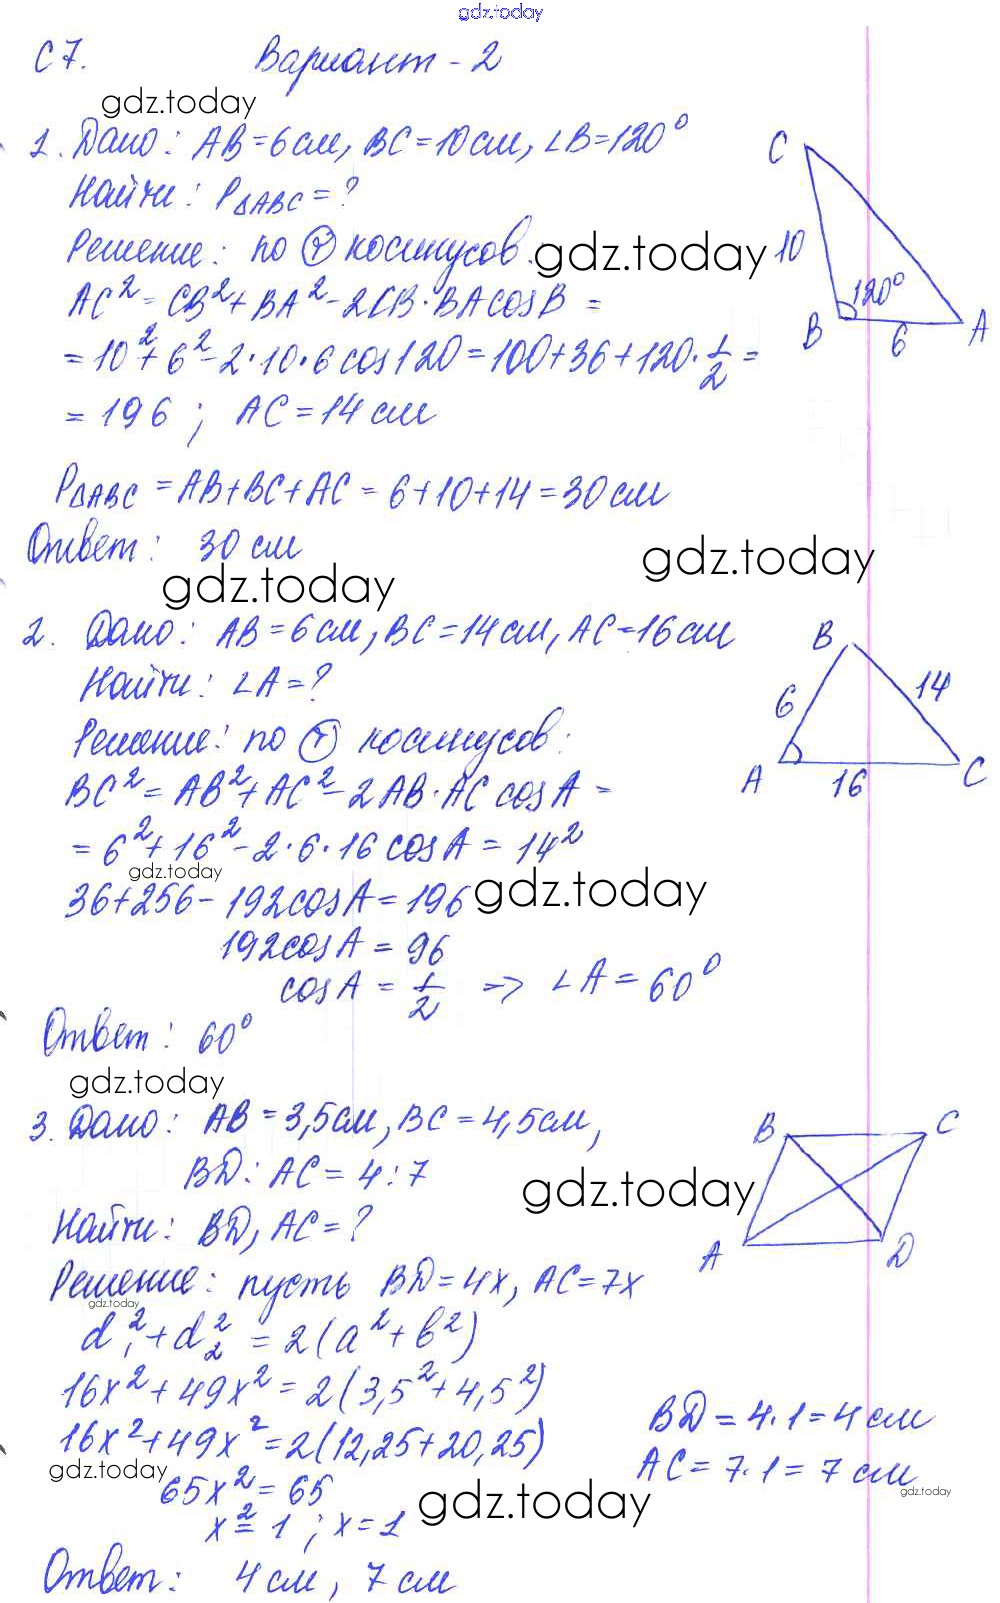 gdz.today
С 7. Вариант - 2
gdz.today
1. Дано: AB = 6 см, BC = 10 см, ∠B = 120°
Найти: P△ABC = ?
Решение: по Ⓣ косинусов:
gdz.today
AC² = CB² + BA² - 2CB · BA cos B =
= 10² + 6² - 2 · 10 · 6 cos 120 = 100 + 36 + 120 · 1/2 =
= 196 ; AC = 14 см
C
10
120°
B
6
A
P△ABC = AB + BC + AC = 6 + 10 + 14 = 30 см
Ответ: 30 см
gdz.today
gdz.today
2. Дано: AB = 6 см, BC = 14 см, AC = 16 см
Найти: ∠A = ?
Решение: по Ⓣ косинусов:
BC² = AB² + AC² - 2 AB · AC cos A =
= 6² + 16² - 2 · 6 · 16 cos A = 14²
gdz.today
36 + 256 - 192 cos A = 196
gdz.today
192 cos A = 96
cos A = 1/2 => ∠A = 60°
B
6
14
A
16
C
Ответ: 60°
gdz.today
3. Дано: AB = 3,5 см, BC = 4,5 см,
BD : AC = 4 : 7
gdz.today
Найти: BD, AC = ?
Решение: пусть BD = 4x, AC = 7x
gdz.today
d₁² + d₂² = 2(a² + b²)
16x² + 49x² = 2(3,5² + 4,5²)
16x² + 49x² = 2(12,25 + 20,25)
gdz.today
65x² = 65
x² = 1 ; x = 1
gdz.today
B
C
A
D
BD = 4 · 1 = 4 см
AC = 7 · 1 = 7 см
gdz.today
Ответ: 4 см, 7 см